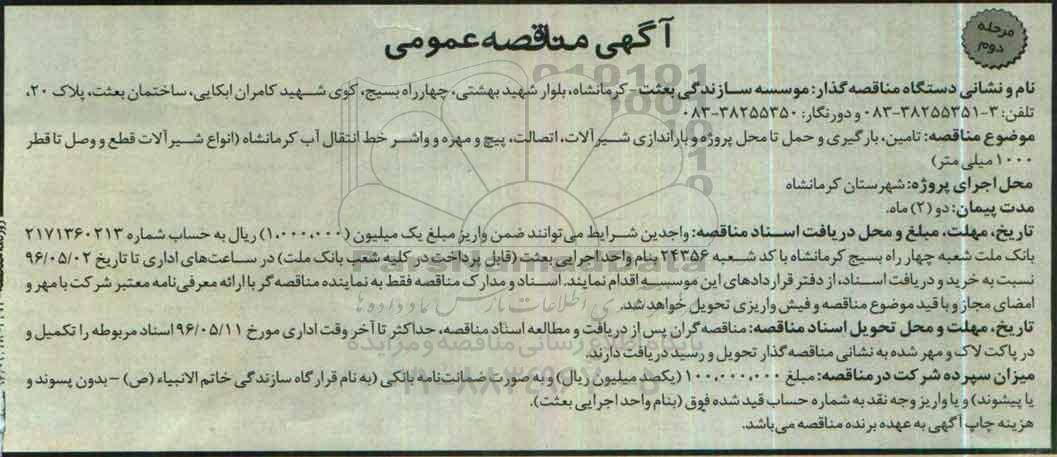 مرحله دوم
آگهی مناقصه عمومی
نام و نشانی دستگاه مناقصه گذار: موسسه سازندگی بعثت - کرمانشاه، بلوار شهید بهشتی، چهارراه بسیج، کوی شهید کامران ابکایی، ساختمان بعثت، پلاک ۲۰،
تلفن: ۳-۳۸۲۵۵۳۵۱-۰۸۳ و دورنگار: ۳۸۲۵۵۳۵۰-۰۸۳
موضوع مناقصه: تامین، بارگیری و حمل تا محل پروژه و باراندازی شیرآلات، اتصالات، پیچ و مهره و واشر خط انتقال آب کرمانشاه (انواع شیرآلات قطع و وصل تا قطر
۱۰۰۰ میلی متر)
محل اجرای پروژه: شهرستان کرمانشاه
مدت پیمان: دو (۲) ماه.
تاریخ، مهلت، مبلغ و محل دریافت اسناد مناقصه: واجدین شرایط می‌توانند ضمن واریز مبلغ یک میلیون (۱،۰۰۰،۰۰۰) ریال به حساب شماره ۲۱۷۱۳۶۰۲۱۳
بانک ملت شعبه چهار راه بسیج کرمانشاه با کد شعبه ۲۴۳۵۶ بنام واحد اجرایی بعثت (قابل پرداخت در کلیه شعب بانک ملت) در ساعت‌های اداری تا تاریخ ۹۶/۰۵/۰۲
نسبت به خرید و دریافت اسناد، از دفتر قراردادهای این موسسه اقدام نمایند. اسناد و مدارک مناقصه فقط به نماینده مناقصه گر با ارائه معرفی‌نامه معتبر شرکت با مهر و
امضای مجاز و با قید موضوع مناقصه و فیش واریزی تحویل خواهد شد.
تاریخ، مهلت و محل تحویل اسناد مناقصه: مناقصه‌گران پس از دریافت و مطالعه اسناد مناقصه، حداکثر تا آخر وقت اداری مورخ ۹۶/۰۵/۱۱ اسناد مربوطه را تکمیل و
در پاکت لاک و مهر شده به نشانی مناقصه گذار تحویل و رسید دریافت دارند.
میزان سپرده شرکت در مناقصه: مبلغ ۱۰۰،۰۰۰،۰۰۰ (یکصد میلیون ریال) و به صورت ضمانت‌نامه بانکی (به نام قرارگاه سازندگی خاتم الانبیاء (ص) – بدون پسوند و
یا پیشوند) و یا واریز وجه نقد به شماره حساب قید شده فوق (بنام واحد اجرایی بعثت).
هزینه چاپ آگهی به عهده برنده مناقصه می‌باشد.